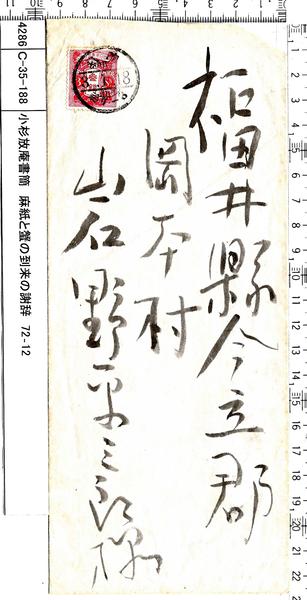 福井縣今立郡
岡本村
岩野平三郎様
4286 C-35-188 小杉放庵書簡 麻紙と蟹の到来の謝辞 72-12